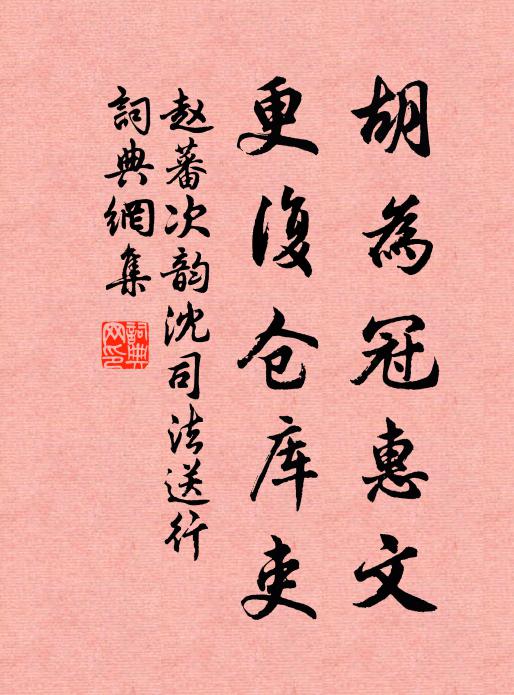 胡為冠惠文
更復仓库吏
赵蕃次韵沈司法送行
詞典網集
詞典網印